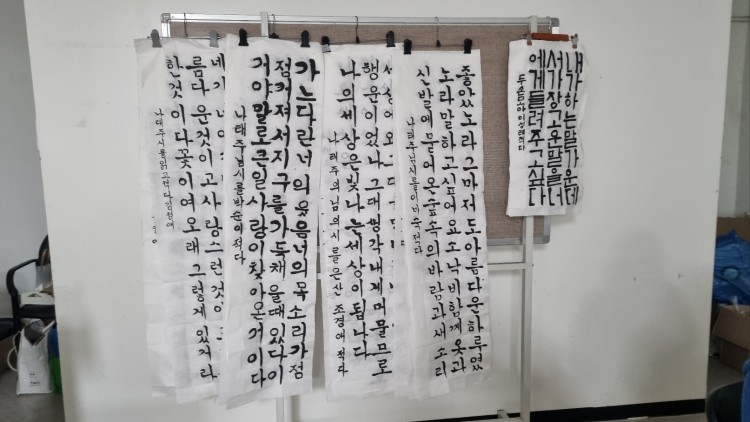 내가하는말가운데
서가장고운말을너
에게들려주고싶다
두손모아
좋았노라그마저도아름다운하루였
노라말하고싶어요소낙비함께옷과
신발에묻어온숲속의바람과새소리
나태주님시를 적다
행운이었나그대생각내게머물므로
나의세상은빛나는세상이됩니다
나태주의님의시를은산조경애적다
가느다란너의웃음너의목소리가점
점커져서지구를가득채울때있다이
거야말로큰일사랑이찾아온거이다
나태주님시를박순이적다
네가
름다운것이고사랑스런것이
한것이다꽃이여오래그렇게있거라
나태주시